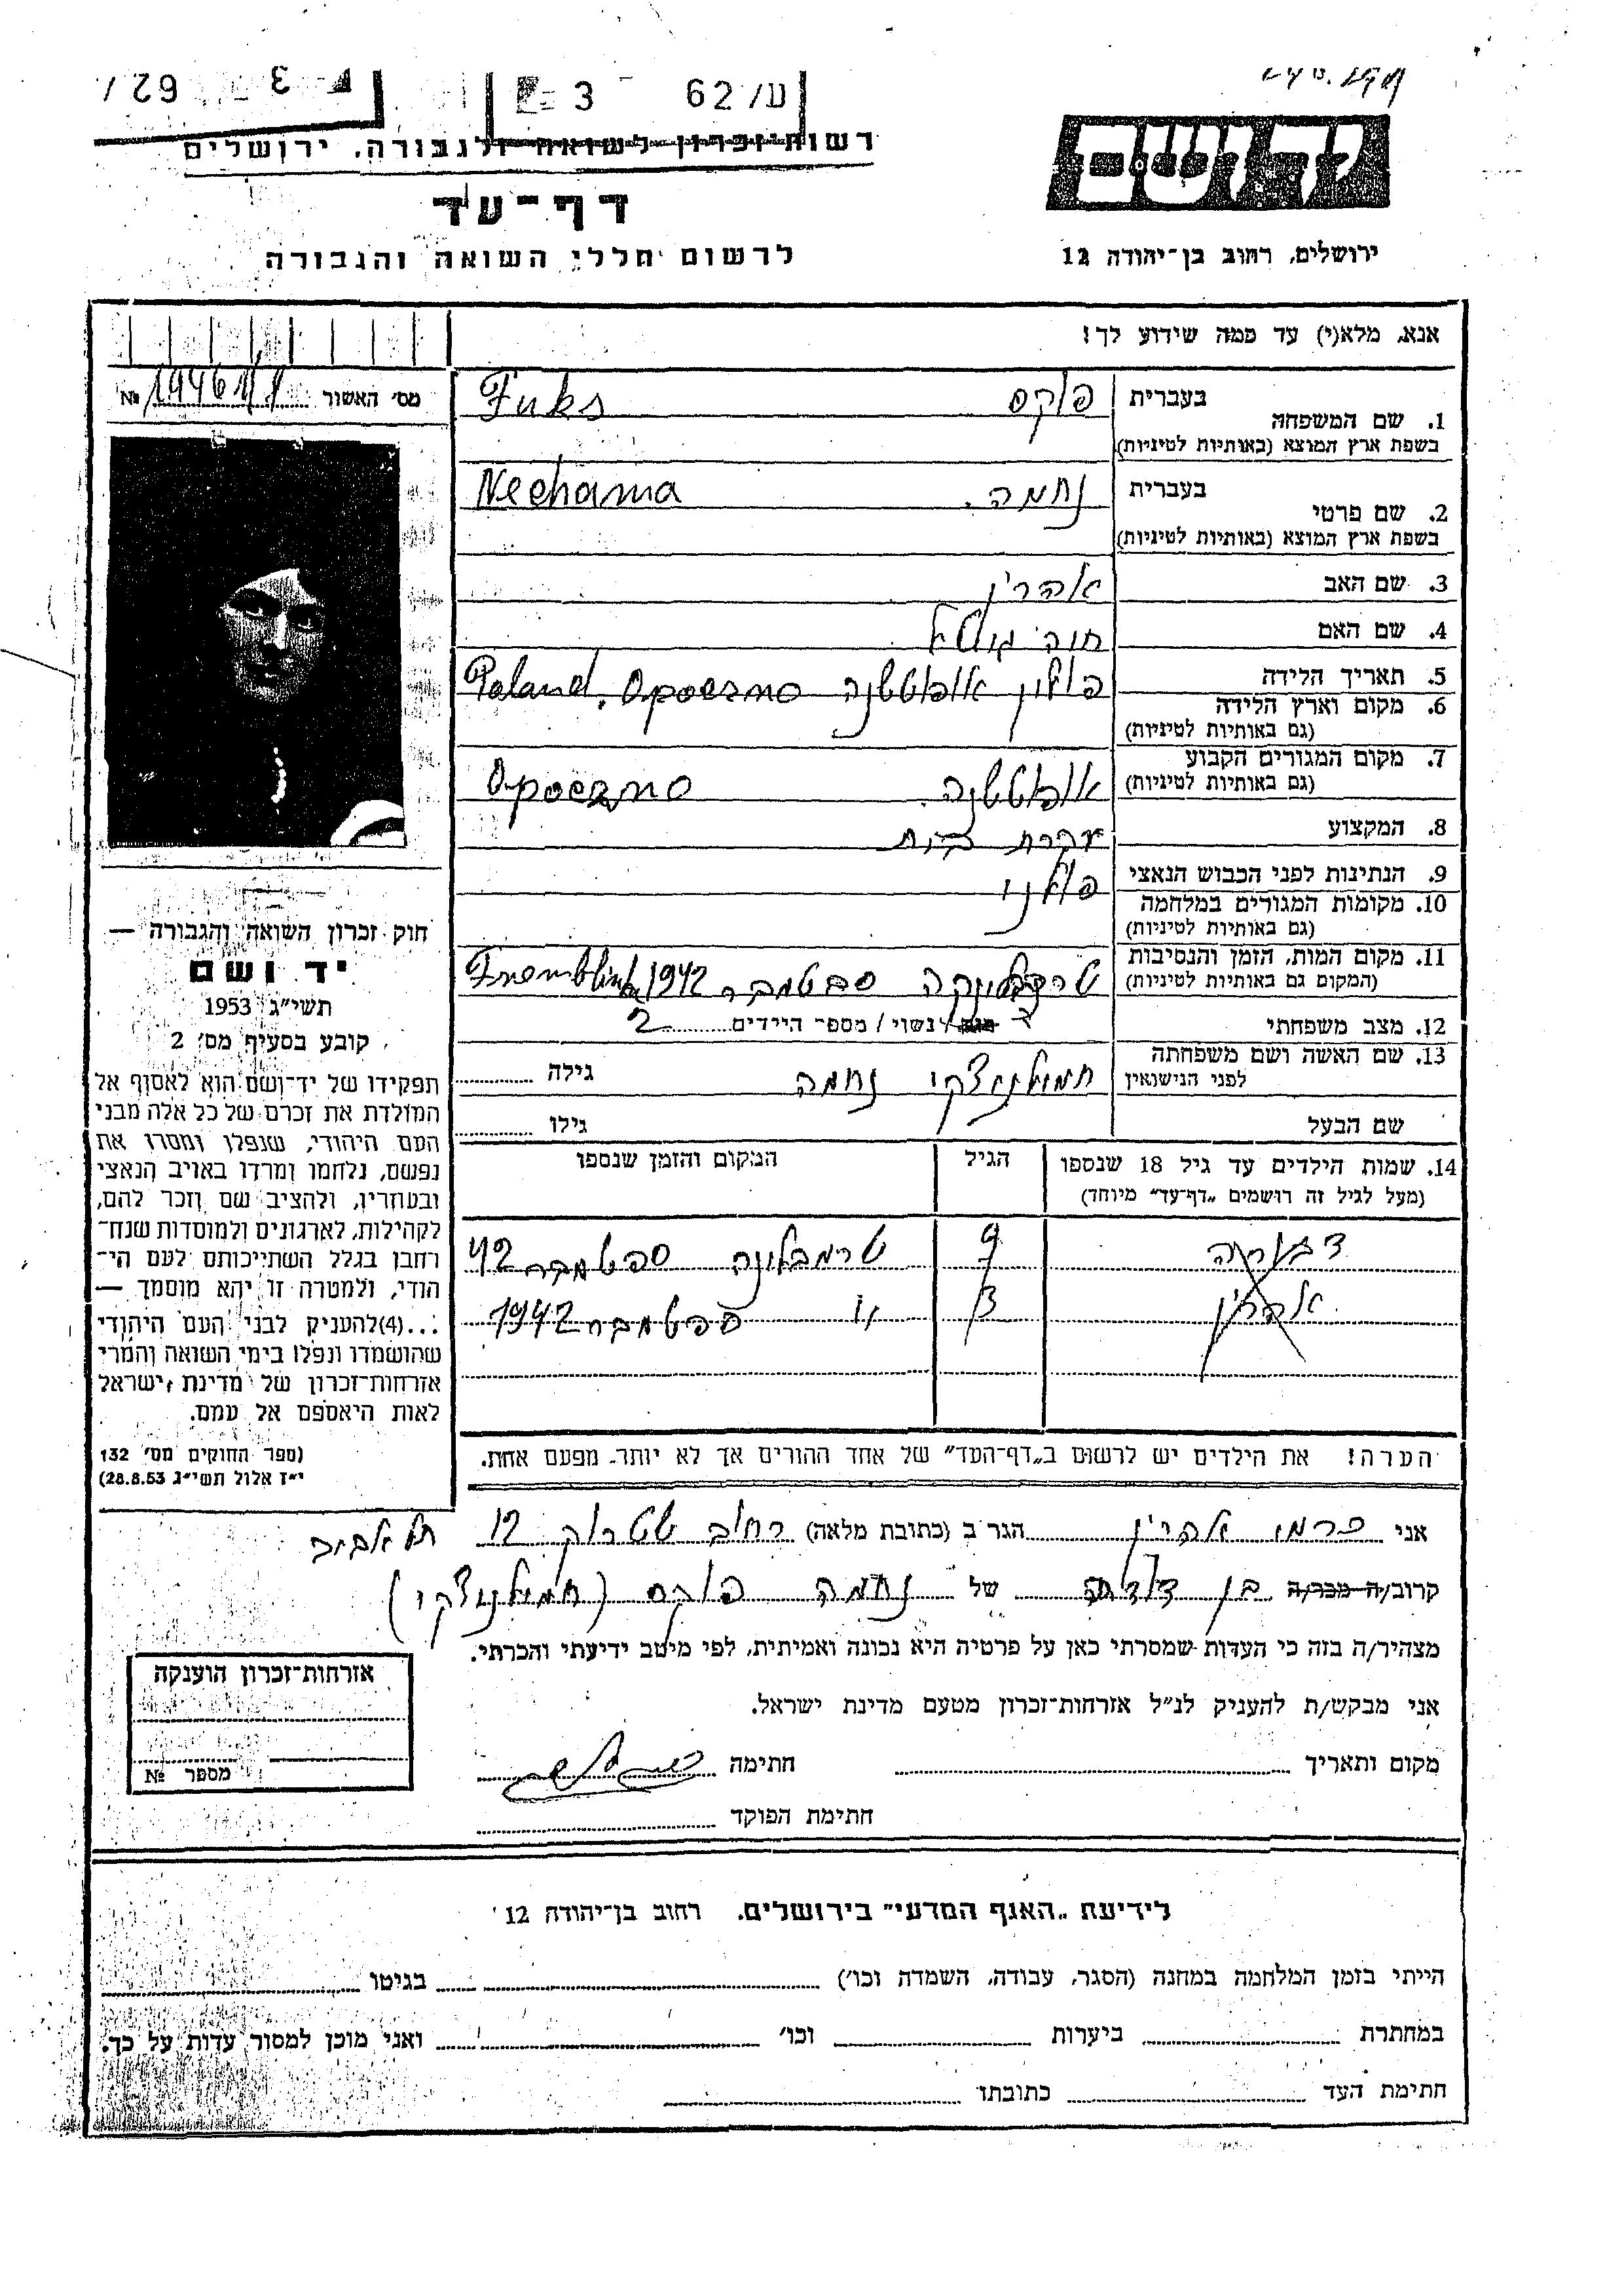 62 / ע 3
רשות זכרון לשואה ולגבורה, ירושלים
דף-עד
לרשום חללי השואה והגבורה
יד ושם
ירושלים, רחוב בן-יהודה 12
אנא, מלא(י) עד כמה שידוע לך!
מס' האשור № 19461/1
1. שם המשפחה בעברית פוקס Fuks
בשפת ארץ המוצא (באותיות לטיניות)
2. שם פרטי בעברית נחמה. Nechama
בשפת ארץ המוצא (באותיות לטיניות)
3. שם האב אהרן
4. שם האם חוה
5. תאריך הלידה
6. מקום וארץ הלידה פולין אופוטשנה Poland, Opoczno
(גם באותיות לטיניות)
7. מקום המגורים הקבוע אופוטשנה. Opoczno
(גם באותיות לטיניות)
8. המקצוע עקרת בית
9. הנתינות לפני הכבוש הנאצי פולני
10. מקומות המגורים במלחמה
(גם באותיות לטיניות)
11. מקום המות, הזמן והנסיבות טרמבלינקה ספטמבר 1942 Tremblinka
(המקום גם באותיות לטיניות)
12. מצב משפחתי רווק / נשוי / מספר הילדים 2
13. שם האשה ושם משפחתה חמילניצקי נחמה גילה
לפני הנישואין
שם הבעל גילו
14. שמות הילדים עד גיל 18 שנספו הגיל המקום והזמן שנספו
(מעל לגיל זה רושמים "דף-עד" מיוחד)
דבורה 9 ספטמבר 42
אהרן " ספטמבר 1942
הערה! את הילדים יש לרשום ב"דף-העד" של אחד ההורים אך לא יותר מפעם אחת.
חוק זכרון השואה והגבורה —
יד ושם
תשי"ג 1953
קובע בסעיף מס' 2
תפקידו של יד-ושם הוא לאסוף אל
המולדת את זכרם של כל אלה מבני
העם היהודי, שנפלו ומסרו את
נפשם, נלחמו ומרדו באויב הנאצי
ובעוזריו, ולהציב שם וזכר להם,
לקהילות, לארגונים ולמוסדות שנח-
רבו בגלל השתייכותם לעם הי-
הודי, ולמטרה זו יהא מוסמך —
...(4) להעניק לבני העם היהודי
שהושמדו ונפלו בימי השואה והמרי
אזרחות-זכרון של מדינת ישראל
לאות היאספם אל עמם.
(ספר החוקים מס' 132
י"ז אלול תשי"ג 28.8.53)
אני אהרן הגר ב (כתובת מלאה) רחוב 12 תל אביב
קרוב/ה מכר/ה בן דודה של נחמה פוקס (חמילניצקי)
מצהיר/ה בזה כי העדות שמסרתי כאן על פרטיה היא נכונה ואמיתית, לפי מיטב ידיעתי והכרתי.
אני מבקש/ת להעניק לנ"ל אזרחות-זכרון מטעם מדינת ישראל.
מקום ותאריך חתימה
חתימת הפוקד
אזרחות-זכרון הוענקה
מספר №
לידיעת "האגף המדעי" בירושלים, רחוב בן-יהודה 12
הייתי בזמן המלחמה במחנה (הסגר, עבודה, השמדה וכו') בגיטו
במחתרת ביערות וכו' ואני מוכן למסור עדות על כך.
חתימת העד כתובתו